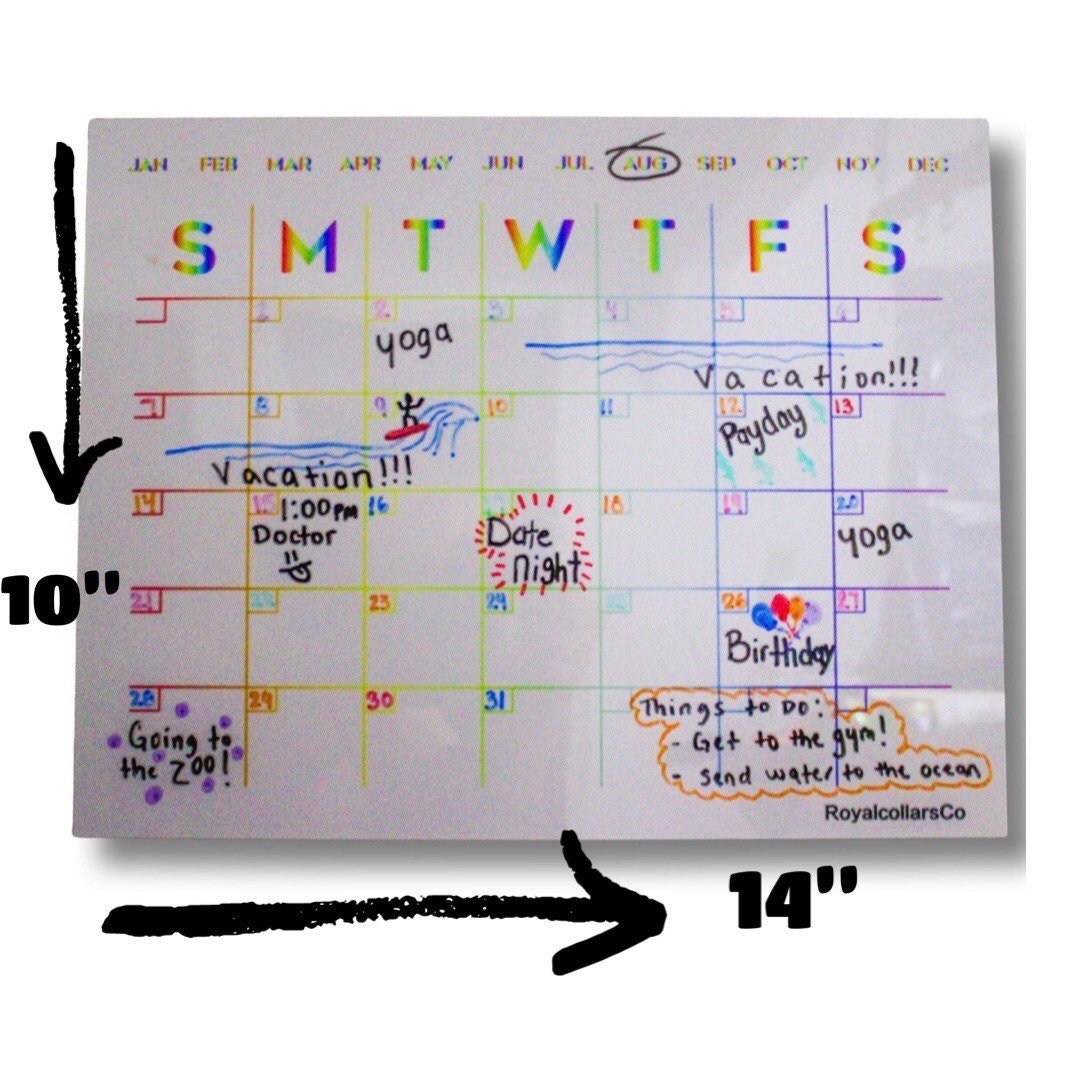 JAN FEB MAR APR MAY JUN JUL AUG SEP OCT NOV DEC
S M T W T F S
1 2 3 4 5 6
yoga
Vacation!!!
7 8 9 10 11 12 13
Payday
Vacation!!!
14 15 16 17 18 19 20
1:00pm
Doctor
Date
night
yoga
10"
21 22 23 24 25 26 27
Birthday
28 29 30 31
Going to
the zoo!
Things to Do:
- Get to the gym!
- send water to the ocean
RoyalcollarsCo
14"